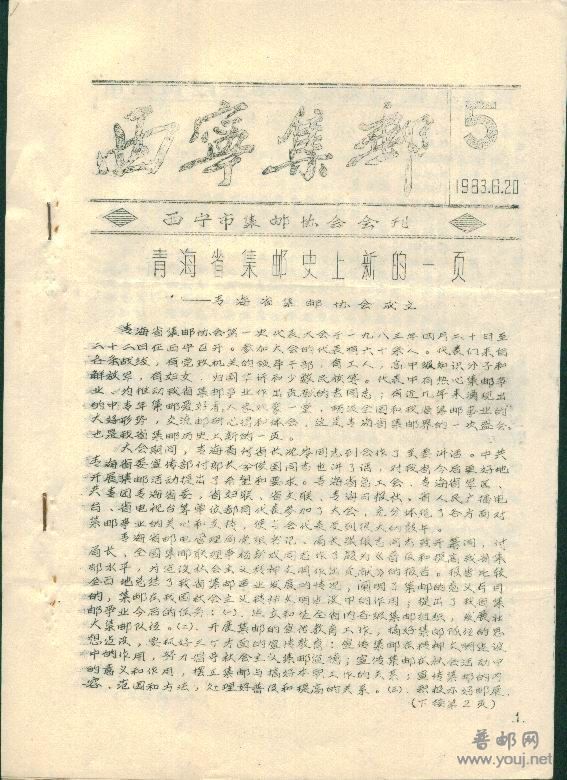 西宁集邮
5
1983.6.20
西宁市集邮协会会刊
青海省集邮史上新的一页
——青海省集邮协会成立
青海省集邮协会第一次代表大会于一九八三年四月二十日至
二十二日在西宁召开。参加大会的代表有六十余人。代表们来自
各条战线，有党政机关的领导干部，有工人，高中级知识分子和
解放军，有妇女、归国华侨和少数民族等。代表中有热心集邮事
业、为推动我省集邮事业作出贡献的老同志；有近几年来涌现出
的中青年集邮爱好者。大家欢聚一堂，畅谈全国和我省集邮事业的
大好形势，交流邮研心得和体会，这是青海省集邮界的一次盛会，
也是我省集邮历史上新的一页。
大会期间，青海省副省长沈岺同志到会作了重要讲话。中共
青海省委宣传部副部长同志也讲了话，对我省今后更好地
开展集邮活动提出了希望和要求。青海省总工会、青海省军区、
共青团青海省委，省妇联、省文联、青海日报社、省人民广播电
台、省电视台等单位都派代表参加了大会，充分体现了各方面对
集邮事业的关心和支持，使与会代表受到很大的鼓舞。
青海省邮电管理局党组书记、局长同志致开幕词，副
局长、全国集邮联理事杨新成同志作了题为《普及和提高我省集
邮水平，为建设社会主义精神文明作出贡献》的报告。报告比较
全面地总结了我省集邮事业发展的情况；阐明了集邮的意义和目
的，集邮在我国社会主义精神文明建设中的作用；提出了我国集
邮事业今后的任务：(一)、建立和健全省内各级集邮组织，发展壮
大集邮队伍。(二)、开展集邮的宣传教育工作，搞好集邮队伍的思
想建设，要抓好三个方面的宣传教育：宣传集邮在精神文明建设
中的作用，努力倡导社会主义集邮道德；宣传集邮在社会活动中
的意义和作用，摆正集邮与搞好本职工作的关系；宣传集邮的内
容、范围和方法，处理好普及和提高的关系。(三)、积极办好邮展，
(下接第2页)
1.
普邮网
www.youj.net